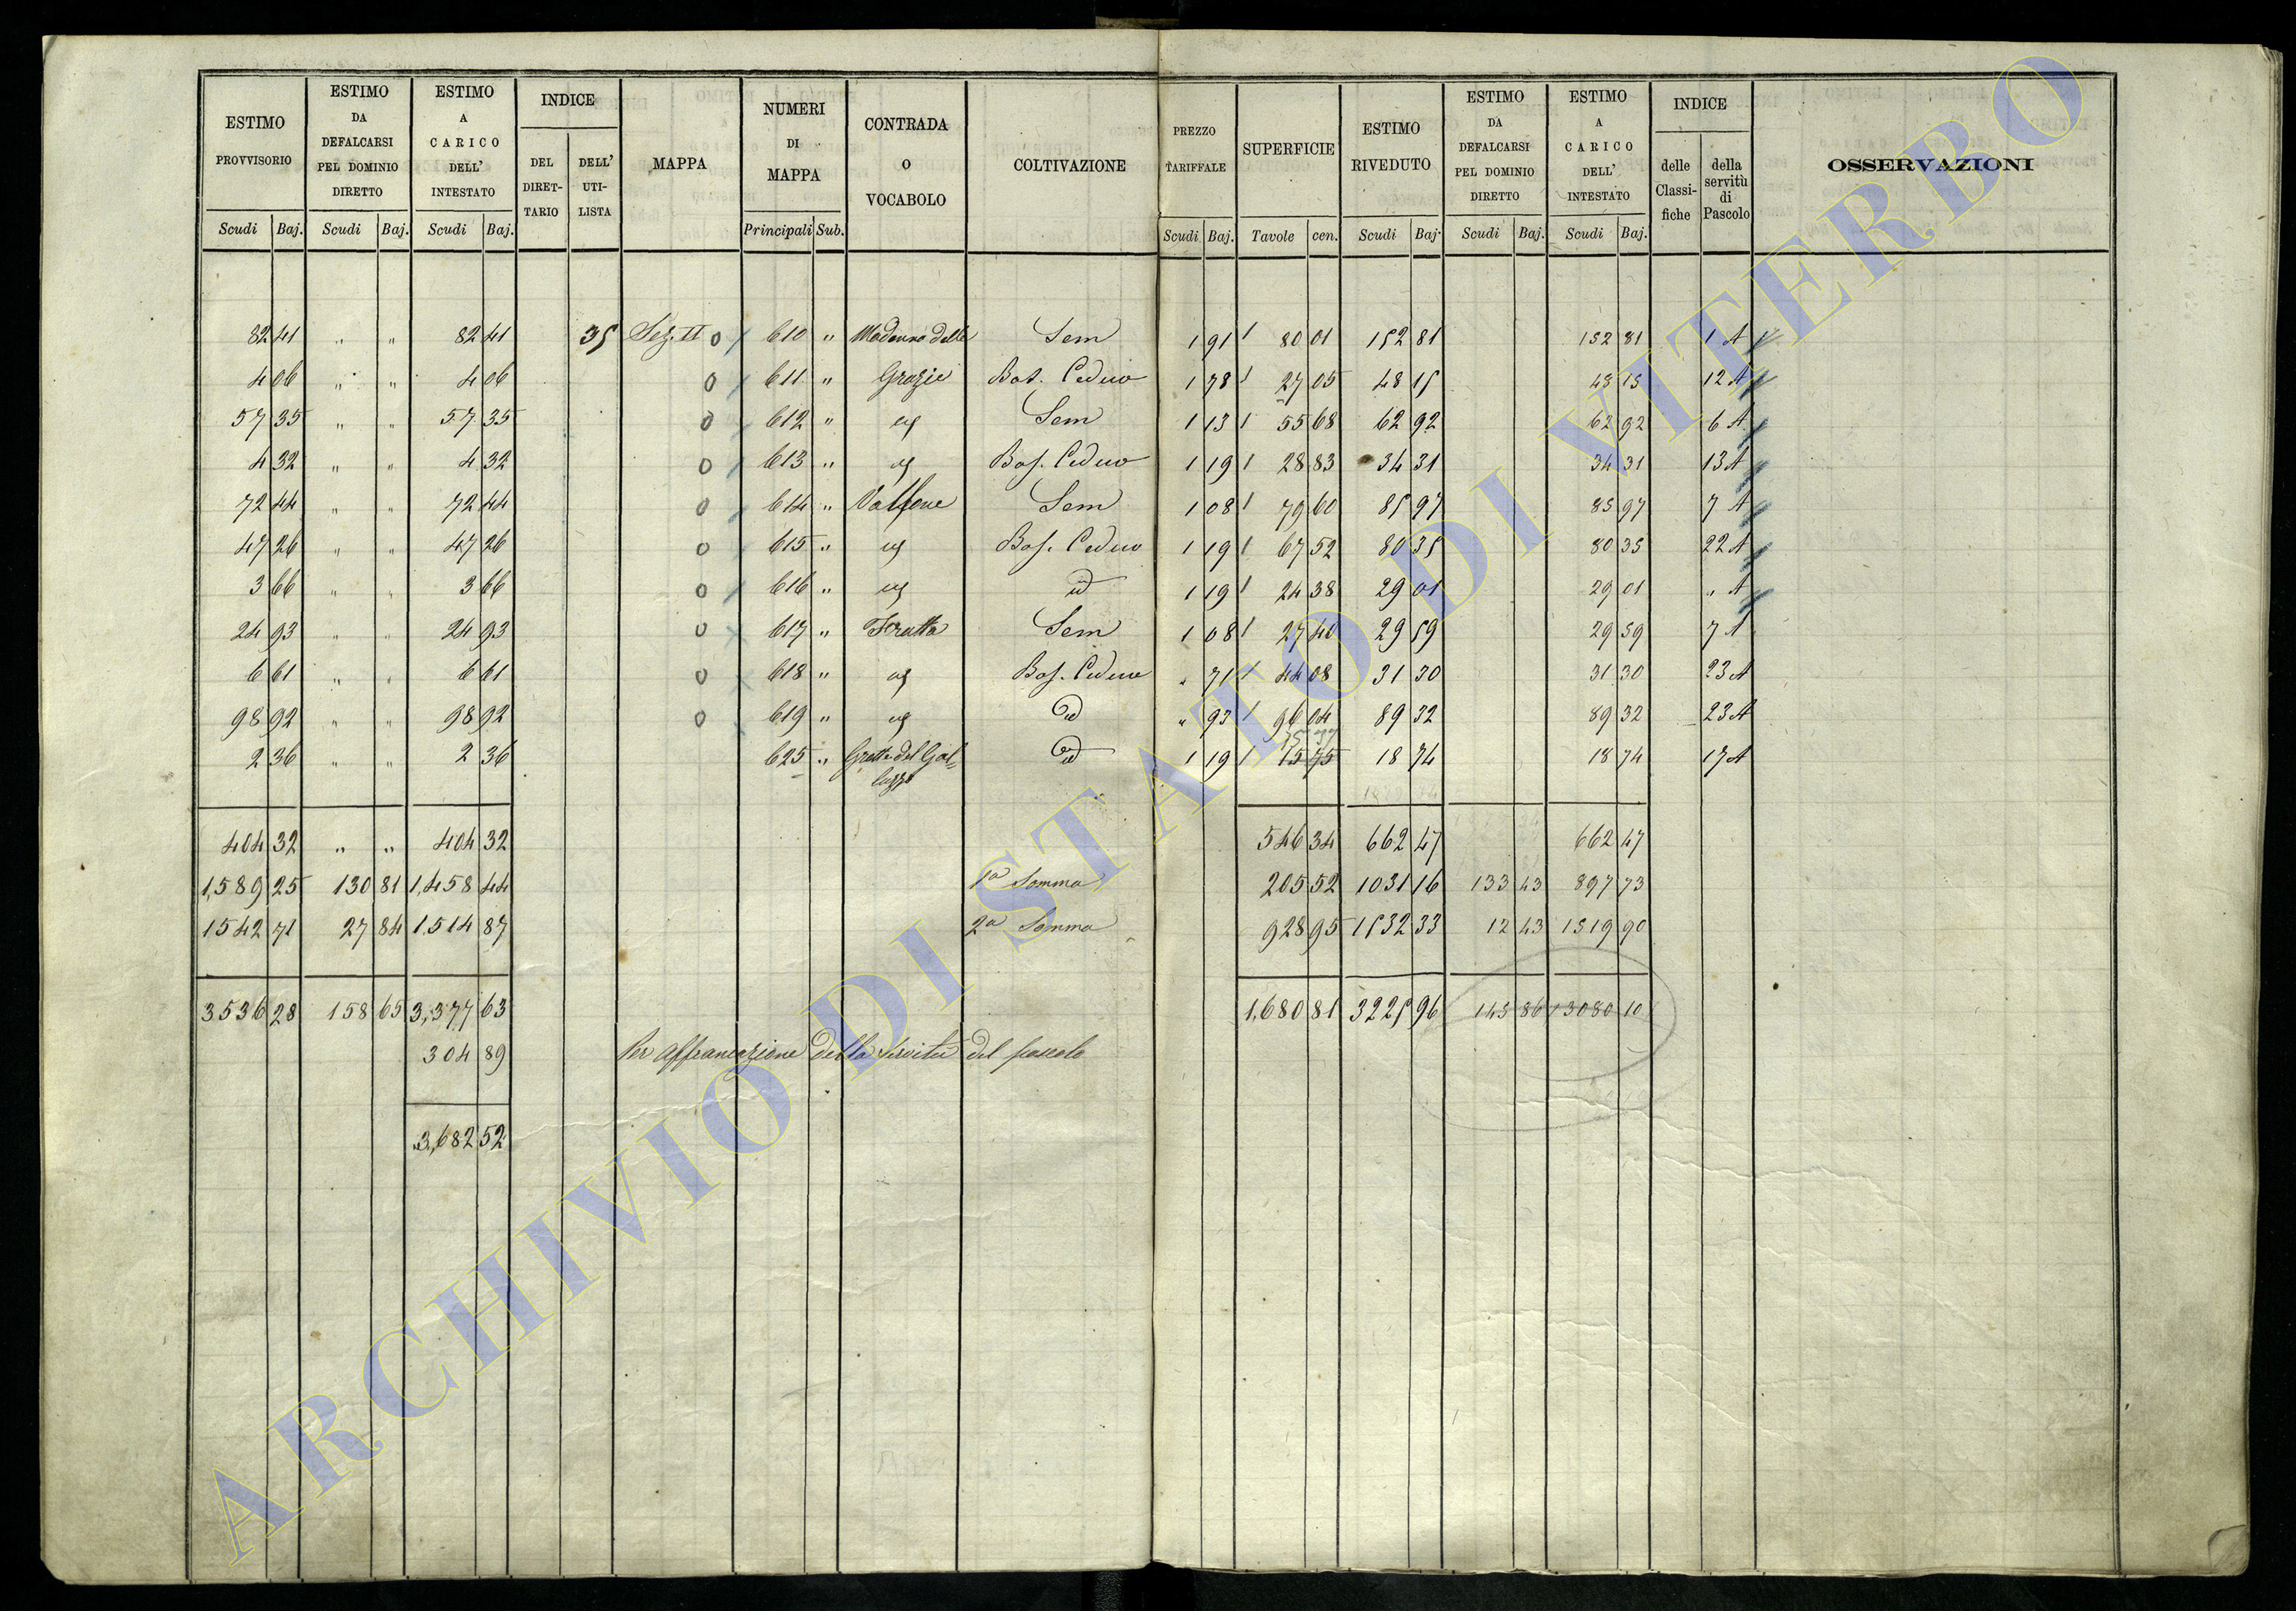 ESTIMO PROVVISORIO | ESTIMO DA DEFALCARSI PEL DOMINIO DIRETTO | ESTIMO A CARICO DELL' INTESTATO | INDICE | MAPPA | NUMERI DI MAPPA | CONTRADA O VOCABOLO | COLTIVAZIONE | PREZZO TARIFFALE | SUPERFICIE | ESTIMO RIVEDUTO | ESTIMO DA DEFALCARSI PEL DOMINIO DIRETTO | ESTIMO A CARICO DELL' INTESTATO | INDICE | OSSERVAZIONI
DEL DIRETTARIO | DELL' UTILISTA | delle Classifiche | della servitù di Pascolo
Scudi | Baj. | Scudi | Baj. | Scudi | Baj. | Principali | Sub. | Scudi | Baj. | Tavole | cen. | Scudi | Baj. | Scudi | Baj. | Scudi | Baj.
82 41 " " 82 41 35 Sez. II 0 610 " Madonna delle Sem 1 91 80 01 152 81 152 81 1 A
4 06 " " 4 06 0 611 " Grazie Bos. Ceduo 1 78 27 05 48 15 48 15 12 A
57 35 " " 57 35 0 612 " Sem 1 13 55 68 62 92 62 92 6 A
4 32 " " 4 32 0 613 " Bos. Ceduo 1 19 28 83 34 31 34 31 13 A
72 44 " " 72 44 0 614 " Valfone Sem 1 08 79 60 85 97 85 97 7 A
47 26 " " 47 26 0 615 " Bos. Ceduo 1 19 67 52 80 35 80 35 22 A
3 66 " " 3 66 0 616 " id 1 19 24 38 29 01 29 01 " A
24 93 " " 24 93 0 617 " Fratta Sem 1 08 27 40 29 59 29 59 7 A
6 61 " " 6 61 0 618 " Bos. Ceduo " 71 44 08 31 30 31 30 23 A
98 92 " " 98 92 0 619 " id " 93 96 04 89 32 89 32 23 A
2 36 " " 2 36 625 " Grotta del Gal= id 1 19 15 75 18 74 18 74 17 A
luzzo
404 32 " " 404 32 546 34 662 47 662 47
1,589 25 130 81 1,458 44 1a Somma 205 52 1031 16 133 43 897 73
1542 71 27 84 1.514 87 2a Somma 928 95 1532 33 12 43 1519 90
3536 28 158 65 3,377 63 1.680 81 3225 96 145 86 3080 10
304 89 Per affrancazione della servitù del pascolo
3,682 52
ARCHIVIO DI STATO DI VITERBO